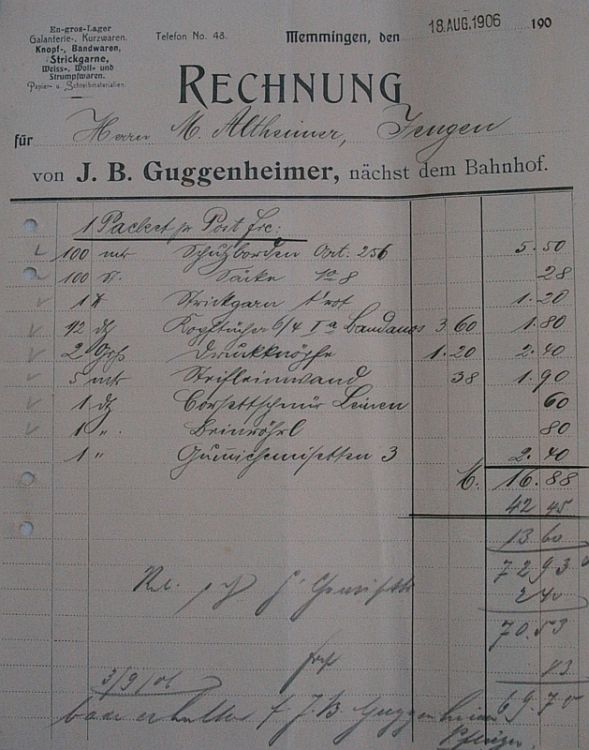 En-gros-Lager
Galanterie-, Kurzwaren.
Knopf-, Bandwaren,
Strickgarne,
Weiss-, Woll- und
Strumpfwaren.
Papier- u. Schreibmaterialien.
Telefon No. 48.
Memmingen, den 18. AUG. 1906 190
RECHNUNG
für Herrn M. Altheimer, Jengen
von J. B. Guggenheimer, nächst dem Bahnhof.
1 Packet pr Post frc:
100 mtr Schutzborden Art. 256 5.50
100 St. Säcke No 8 28
1 Strickgarn rot 1.20
1/2 dz Kopftücher 6/4 Ia Bandanos 3 60 1.80
2 Grß Druckknöpfe 1.20 2.40
5 mtr Steifleinwand 38 1.90
1 dz Corsettschnür Leinen 60
1 " Beinröhrl 80
1 " Gummichemisetten 3 2.40
M. 16.88
42 45
13 60
72 93
2 40
70.53
83
3/9/06 69 70
baar erhalten J. B. Guggenheimer